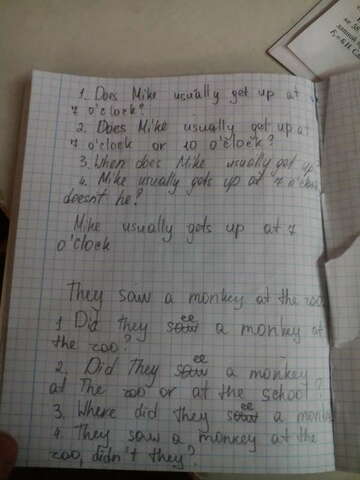 1. Does Mike usually get up at
7 o'clock?
2. Does Mike usually get up at
7 o'clock or 10 o'clock?
3. When does Mike usually get up
4. Mike usually gets up at 7 o'clock
doesn't he?
Mike usually gets up at 7
o'clock
They saw a monkey at the zoo
1 Did they see a monkey at
the zoo?
2. Did They see a monkey
at The zoo or at the school?
3. Where did they see a monkey
4. They saw a monkey at the
zoo, didn't they?